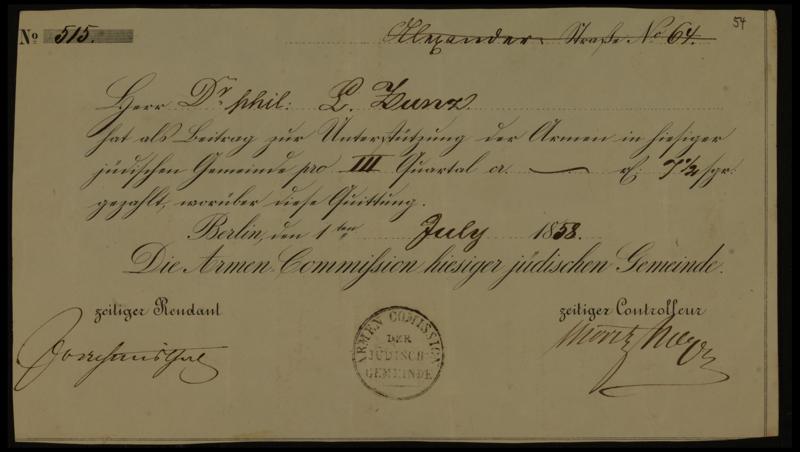 54
No 515.
Alexander Straße No 64.
Herr Dr. phil: L. Zunz.
hat als Beitrag zur Unterstützung der Armen in hiesiger
jüdischen Gemeinde pro III Quartal cr. 7 1/2 sgr.
gezahlt, worüber diese Quittung.
Berlin, den 1ten July 1858.
Die Armen-Commission hiesiger jüdischen Gemeinde.
zeitiger Rendant
zeitiger Controlleur
ARMEN COMISSION
DER
JÜDISCH
GEMEINDE
Moritz Meyer